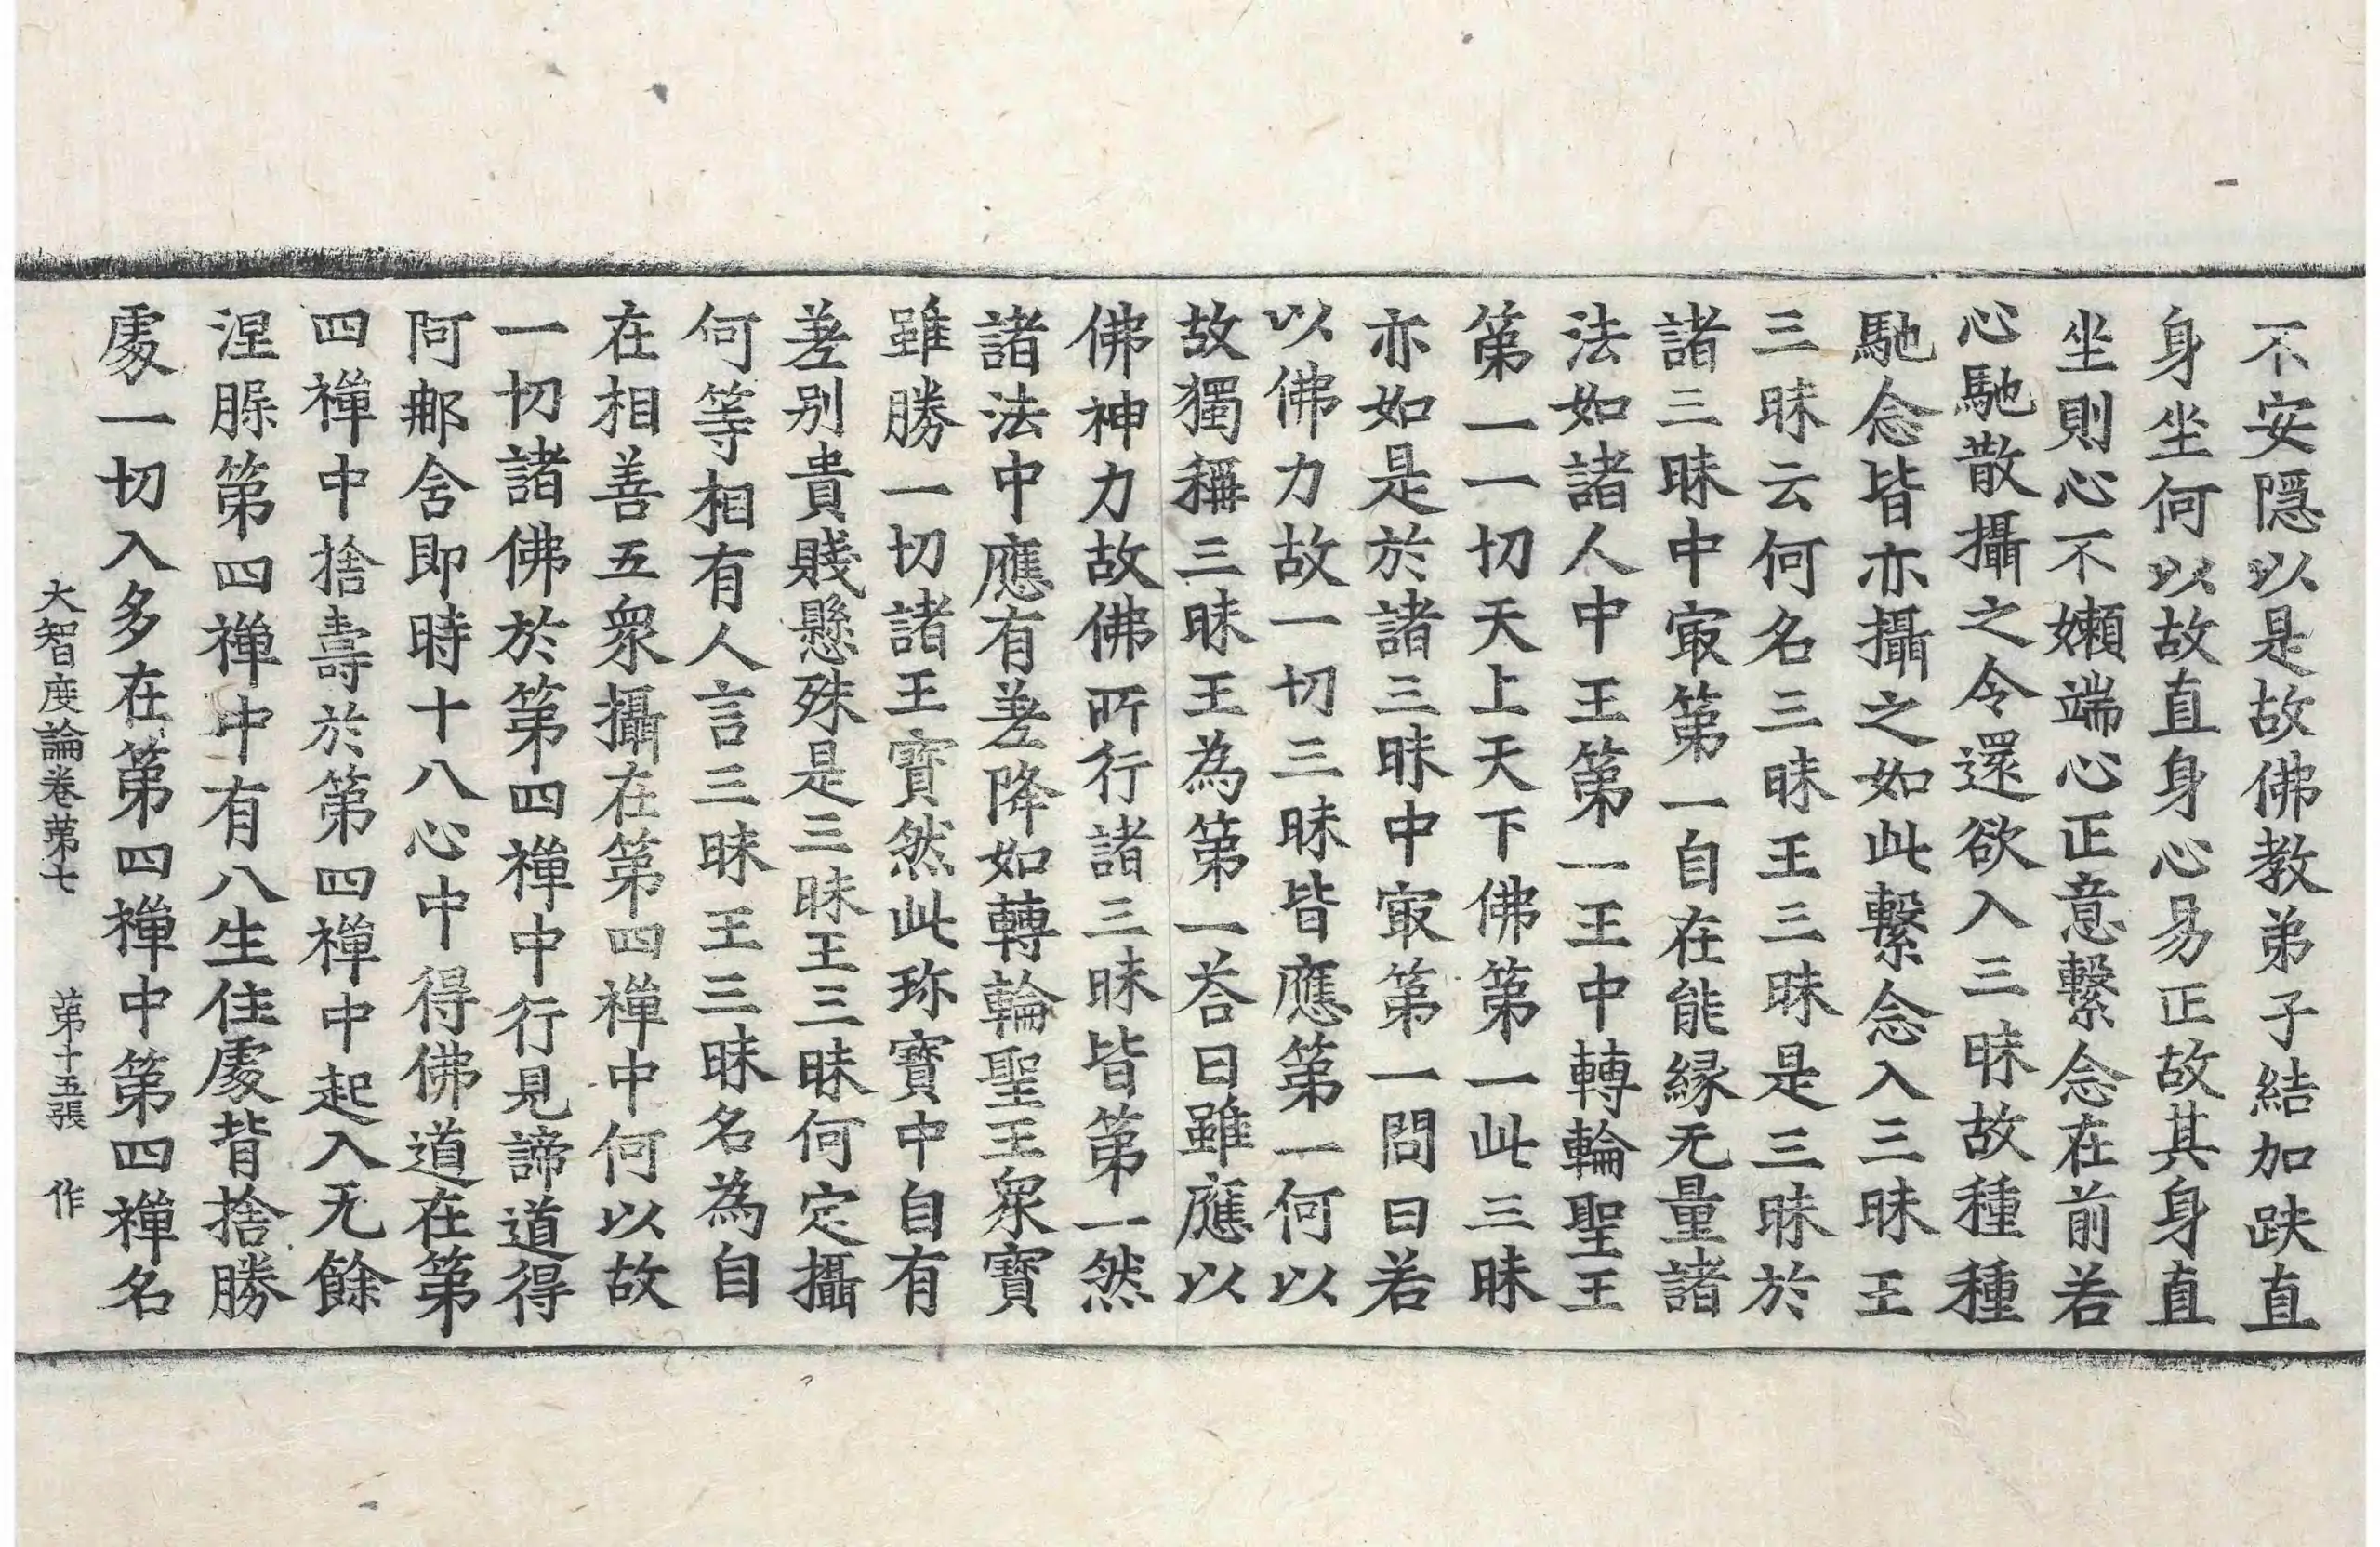 不安隱以是故佛教弟子結加趺直
身坐何以故直身心易正故其身直
坐則心不嬾端心正意繫念在前若
心馳散攝之令還欲入三昧故種種
馳念皆亦攝之如此繫念入三昧王
三昧云何名三昧王三昧是三昧於
諸三昧中㝡第一自在能縁无量諸
法如諸人中王第一王中轉輪聖王
第一一切天上天下佛第一此三昧
亦如是於諸三昧中㝡第一問曰若
以佛力故一切三昧皆應第一何以
故獨稱三昧王為第一荅曰雖應以
佛神力故佛所行諸三昧皆第一然
諸法中應有差降如轉輪聖王衆寶
雖勝一切諸王寶然此珎寶中自有
差别貴賤懸殊是三昧王三昧何定攝
何等相有人言三昧王三昧名為自
在相善五衆攝在第四禪中何以故
一切諸佛於第四禪中行見諦道得
阿那含即時十八心中得佛道在第
四禪中捨壽於第四禪中起入无餘
涅槃第四禪中有八生住處背捨勝
處一切入多在第四禪中第四禪名
大智度論卷第七 第十五張 作